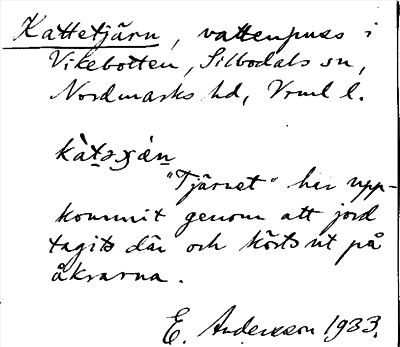 Kattetjärn, vattenpuss i
Vikebotten, Silbodals sn,
Nordmarks hd, Vrml l.
kàt̠əʒǽn̠
"Tjärnet" har upp-
kommit genom att jord
tagits där och körts ut på
åkrarna.
E. Andersson 1933.